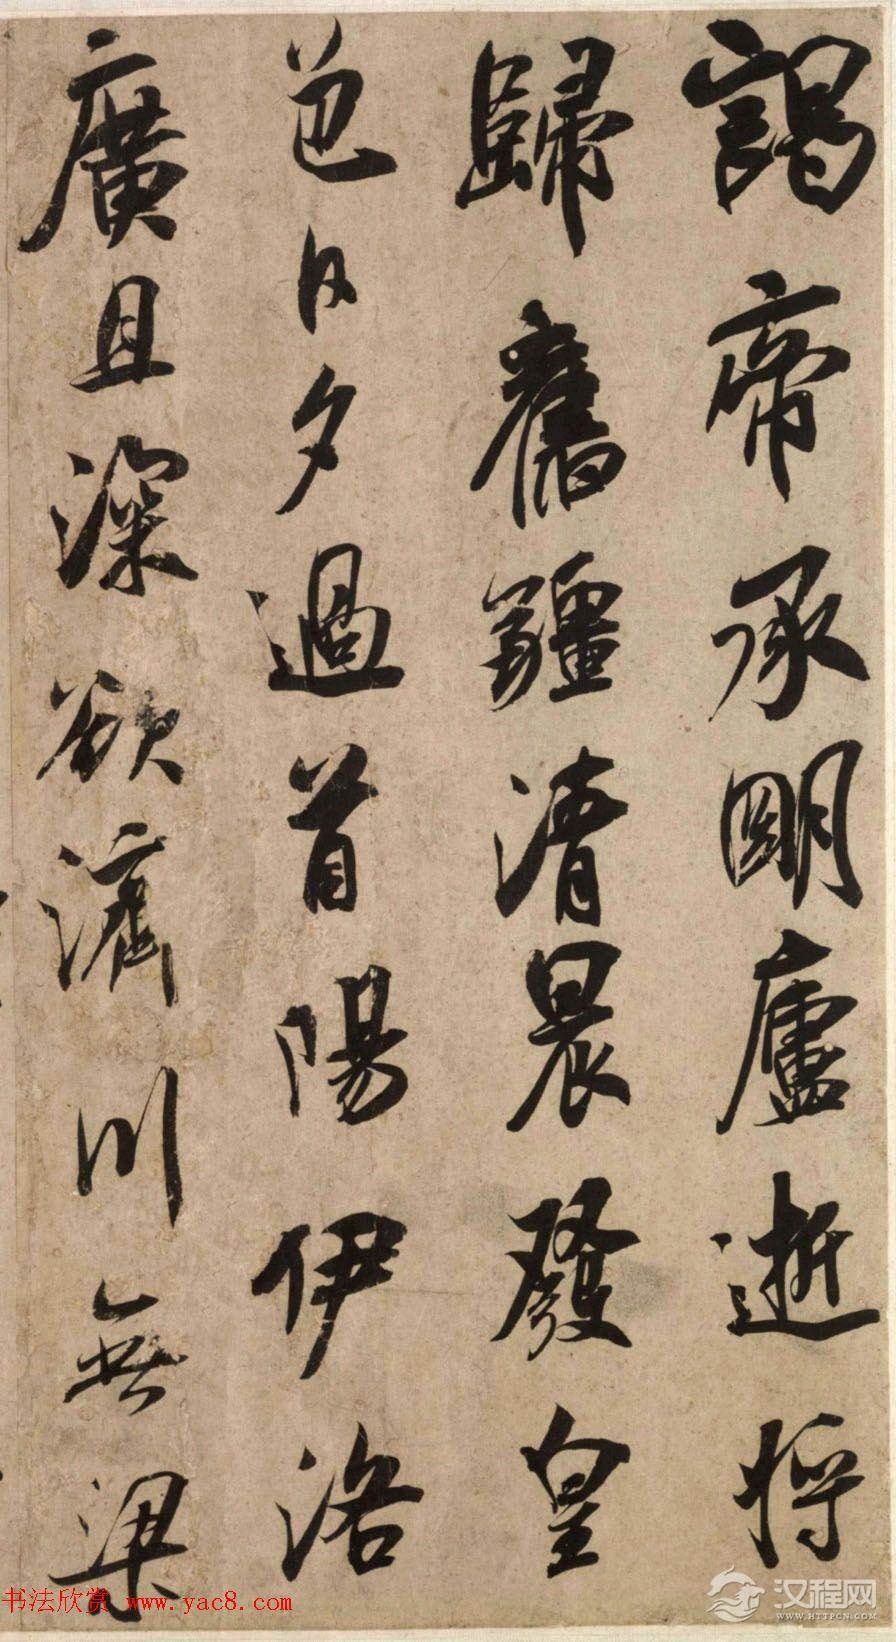 謁帝承明廬逝將
歸舊疆清晨發皇
邑日夕過首陽伊洛
廣且深欲濟川無梁
书法欣赏 www.yac8.com
汉程网
WWW.HTTPCN.COM